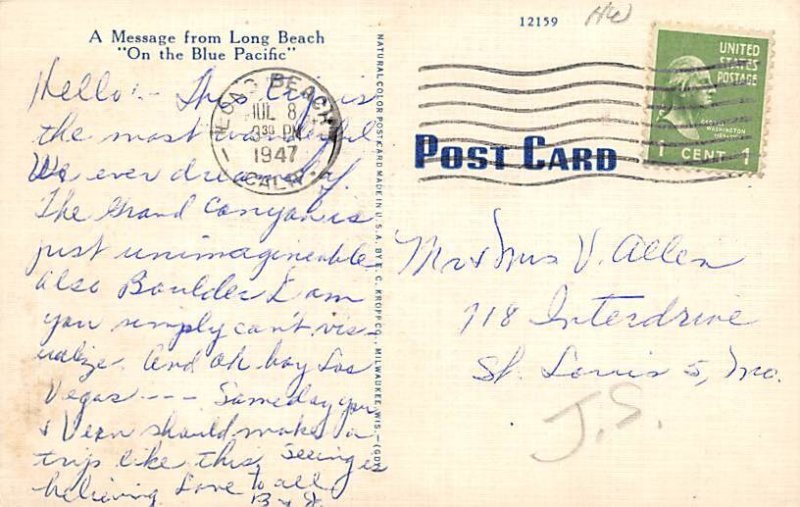 A Message from Long Beach
"On the Blue Pacific"
Hello! - This City is
the most wonderful
We ever dreamed of.
The Grand Canyon is
just unimagineable
also Boulder Dam
you simply can't vis-
ualize. And oh boy Los
Vegas - - - Someday you
& Vern should make a
trip like this, Seeing is
believing Love to all
NATURAL COLOR POST CARD MADE IN U. S. A. BY E. C. KROPP CO., MILWAUKEE, WIS.
BEACH
JUL 8
3 30 PM
1947
CALIF.
12159
HW
UNITED
STATES
POSTAGE
GEORGE
WASHINGTON
1 CENT 1
POST CARD
Mr & Mrs V. Allen
718 Interdrive
St. Louis 5, Mo.
J.S.